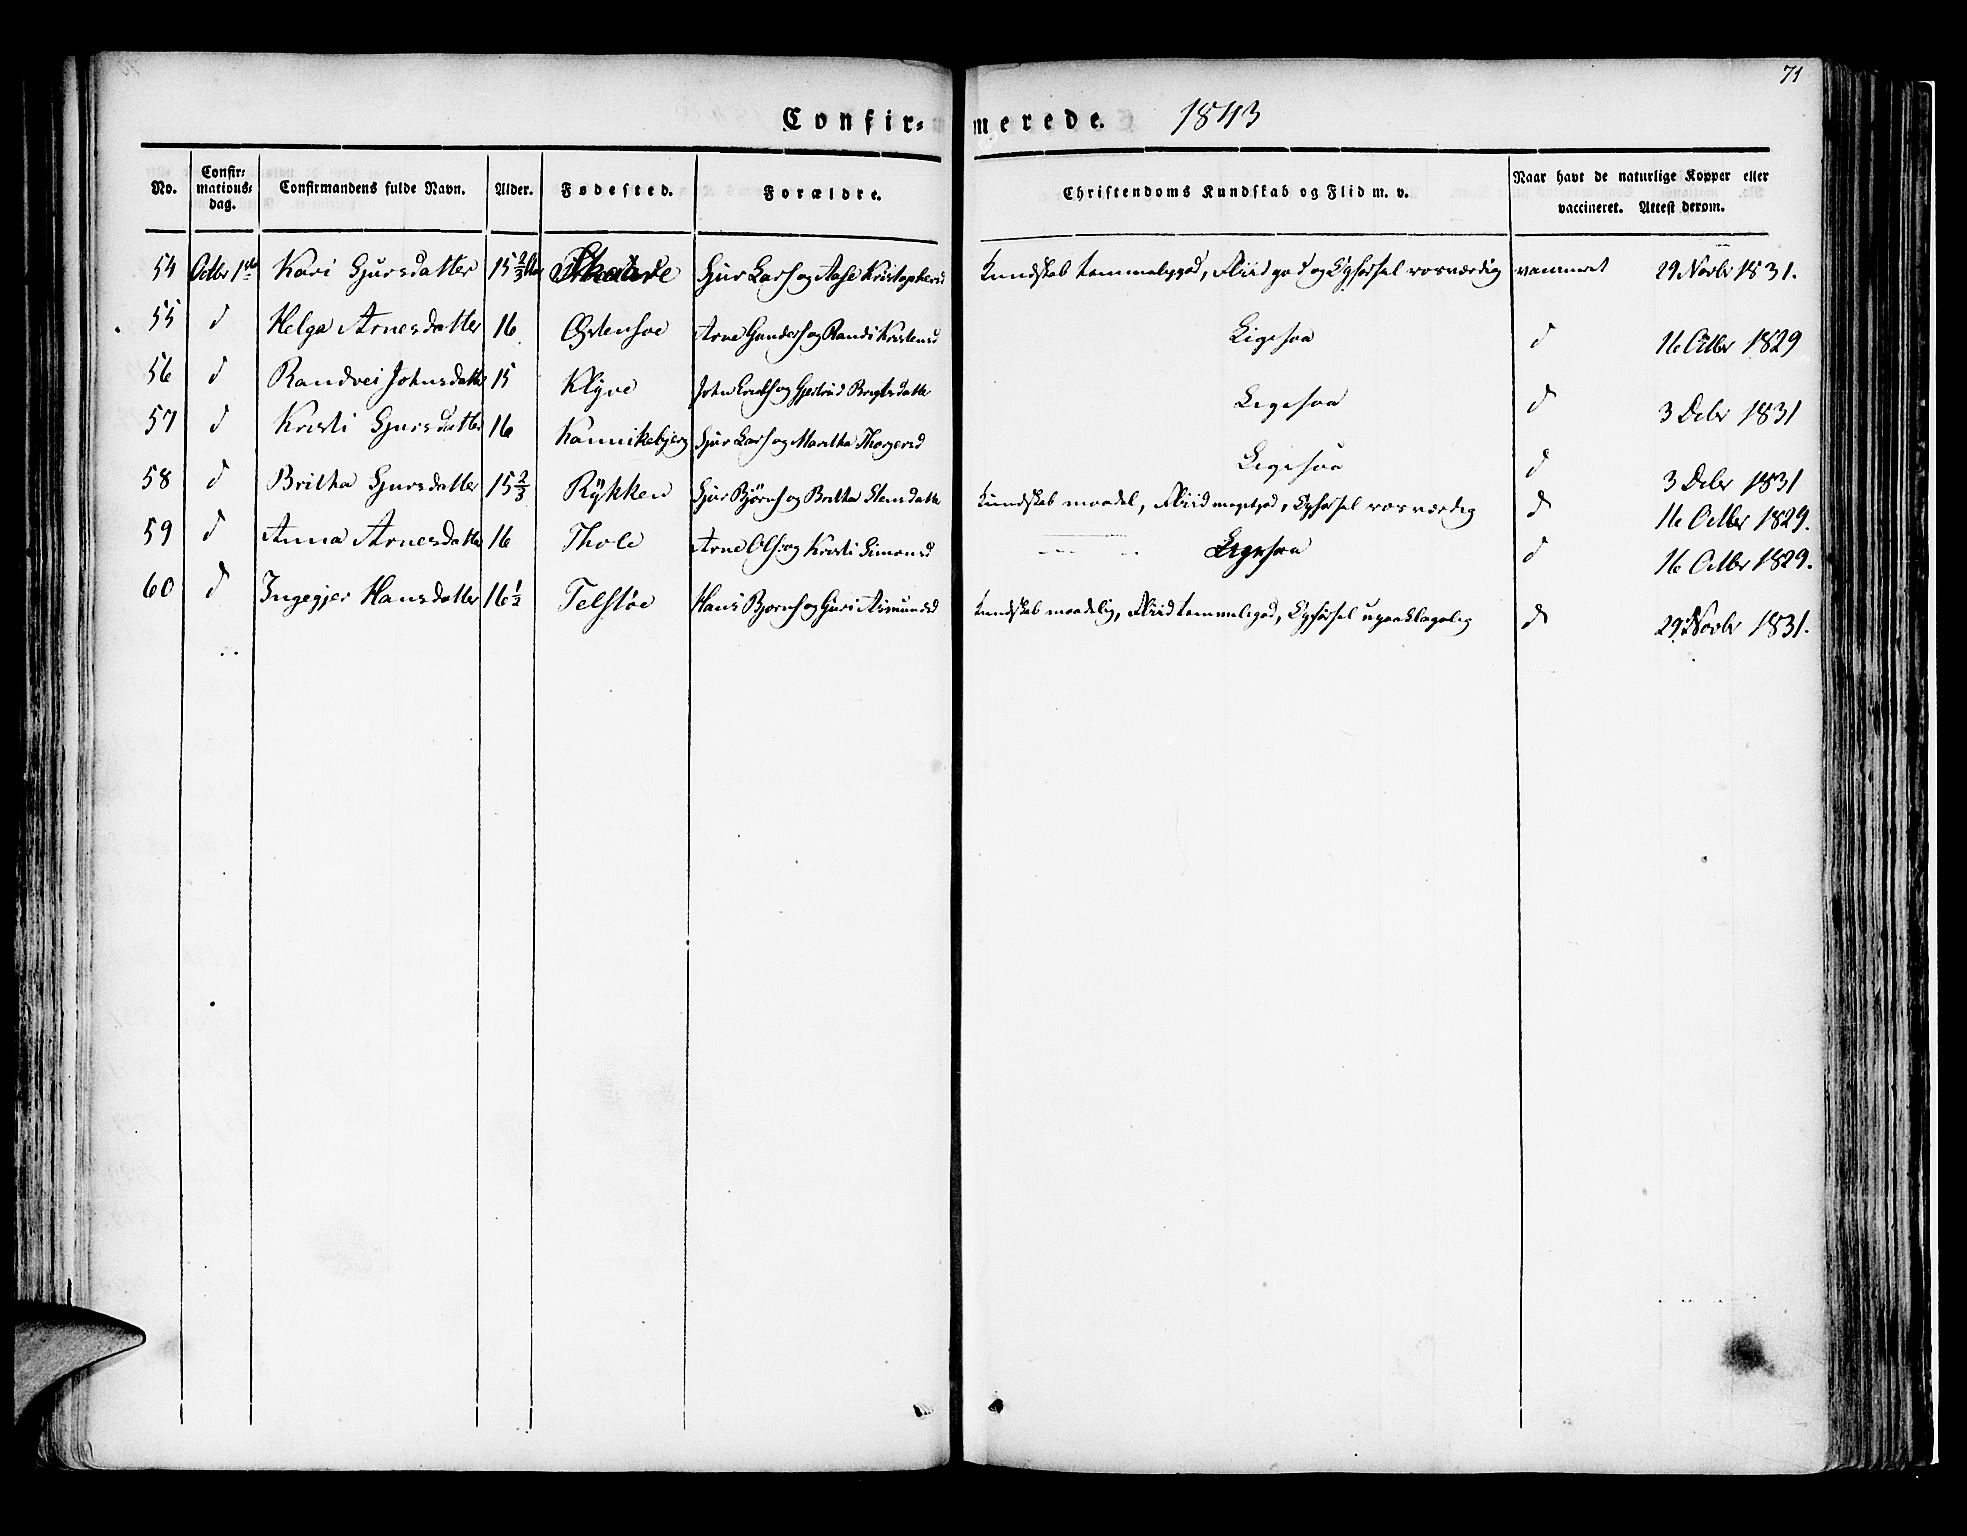 71
Confir= merede. 1843
No. Confir= mations= dag. Confirmandens fulde Navn. Alder. Fødested. Forældre. Christendoms Kundskab og Flid m. v. Naar havt de naturlige Kopper eller vaccineret. Attest derom.
54 Octbr 1ste Kari Sjursdatter 15 2/3 Sjur Lars og Aase Kristophersd Kundskab temmeliggod, Fliid god og Opførsel rosværdig vaccineret 29 Novbr 1831.
55 d Helga Arnesdatter 16 Østensøe Arne Gunders og Randi Kristensd Ligesaa d 16 Octbr 1829
56 d Randvei Johnsdatter 15 Klyve John og Gjertrud Brytesdatter Ligesaa d 3 Debr 1831
57 d Kristi Sjursdatter 16 Kannikebjerg Sjur Lars og Martha Thorgersd Ligesaa d 3 Debr 1831
58 d Britha Sjursdatter 15 2/3 Rykken Sjur Bjørns og Britha Stensdatter Kundskab maadel, Fliid megetgod, Opførsel rosværdig d 16 Octbr 1829.
59 d Anna Arnesdatter 16 Thole Arne Ols og Kristi Simonsd Ligesaa d 16 Octbr 1829.
60 d Ingegjer Hansdatter 16 1/2 Telstøe Hans Bjørns og Guri Asmundsd Kundskab maadelig, Fliid temmeligod, Opførsel upaaklagelig d 29 Novbr 1831.